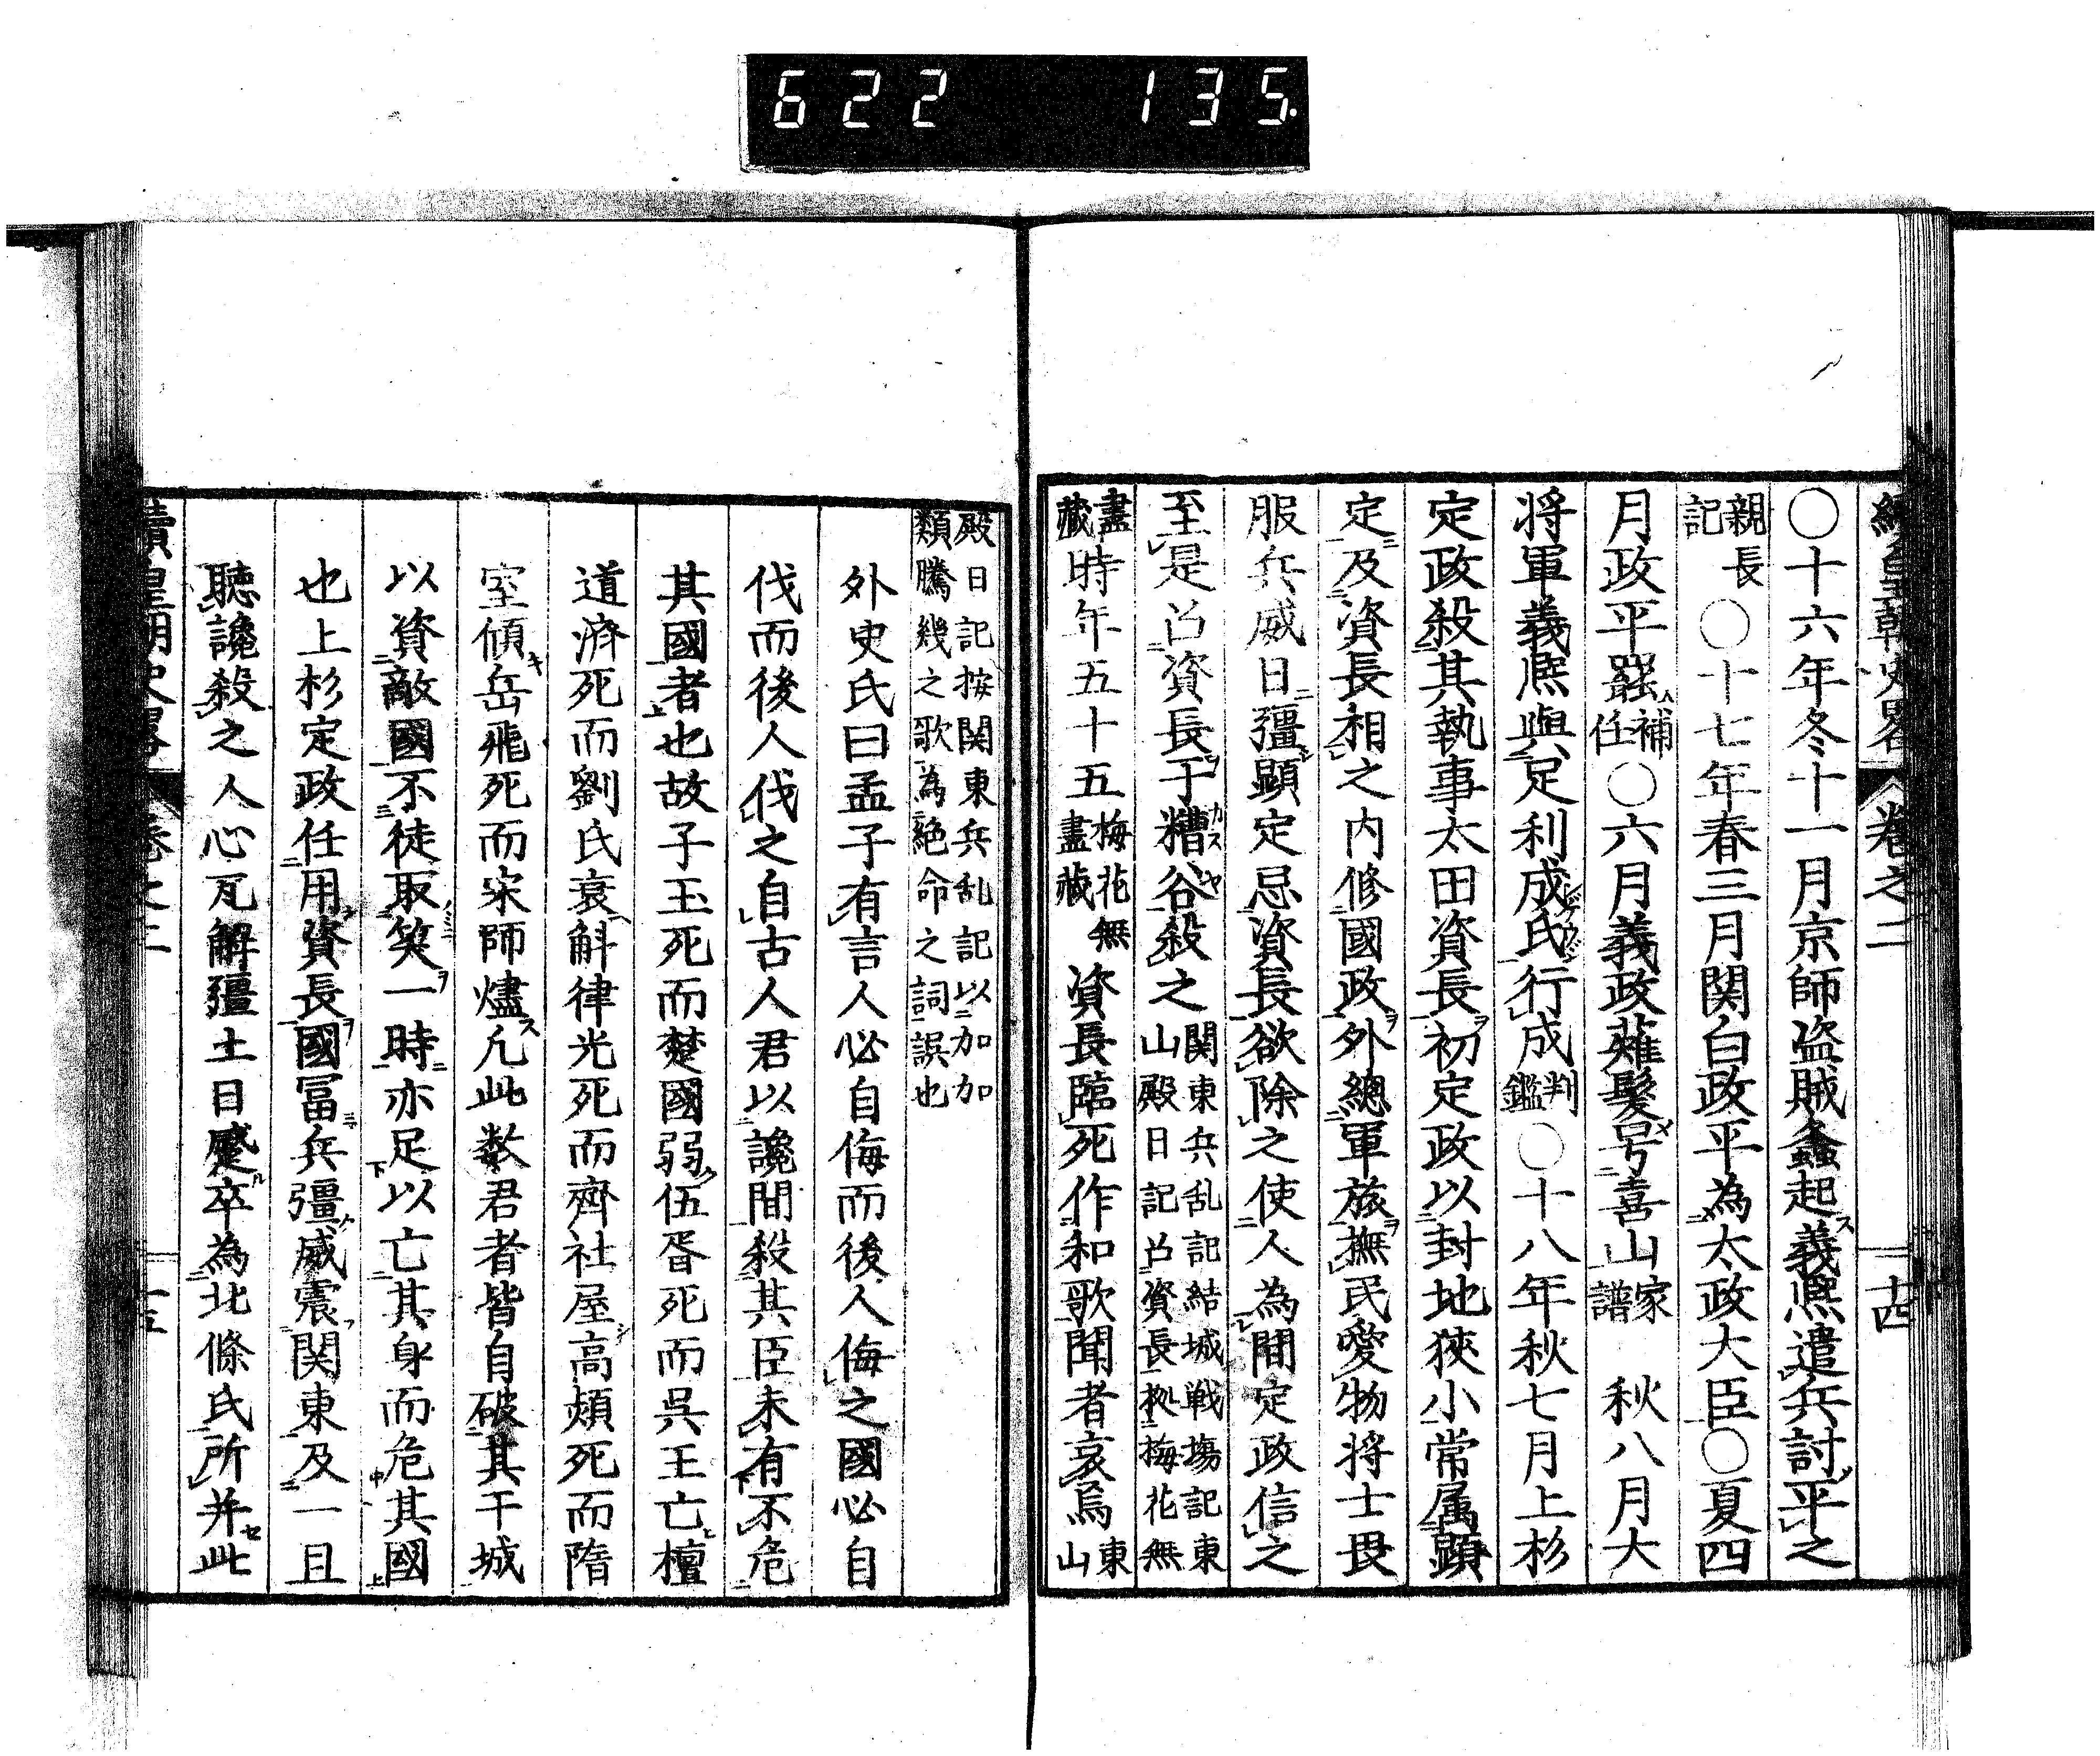 622 135
續皇朝史畧 卷之二 十四
〇十六年冬十一月京師盗賊蠭起義熈遣兵討平之
親長記〇十七年春三月関白政平為太政大臣〇夏四
月政平罷補任〇六月義政薙髮号喜山家譜 秋八月大
将軍義熈與足利成氏行成判鑑〇十八年秋七月上杉
定政殺其執事太田資長初定政以封地狹小常属顕
定及資長相之内修國政外總軍旅撫民愛物将士畏
服兵威日彊顕定忌資長欲除之使人為間定政信之
至是召資長于糟谷殺之関東兵乱記結城戦塲記東山殿日記召資長拠梅花無
盡藏時年五十五梅花無盡藏 資長臨死作和歌聞者哀焉東山
殿日記按関東兵乱記以加加類騰幾之歌為絶命之詞誤也
外史氏曰孟子有言人必自侮而後人侮之國必自
伐而後人伐之自古人君以讒間殺其臣未有不危
其國者也故子玉死而楚國弱伍胥死而呉王亡檀
道濟死而劉氏衰斛律光死而齊社屋高熲死而隋
室傾岳飛死而宋師燼凡此数君者皆自破其干城
以資敵國不徒取笑一時亦足以亡其身而危其國
也上杉定政任用資長國冨兵彊威震関東及一旦
聴讒殺之人心瓦解彊土日蹙卒為北條氏所并此
續皇朝史畧 卷之二 十五